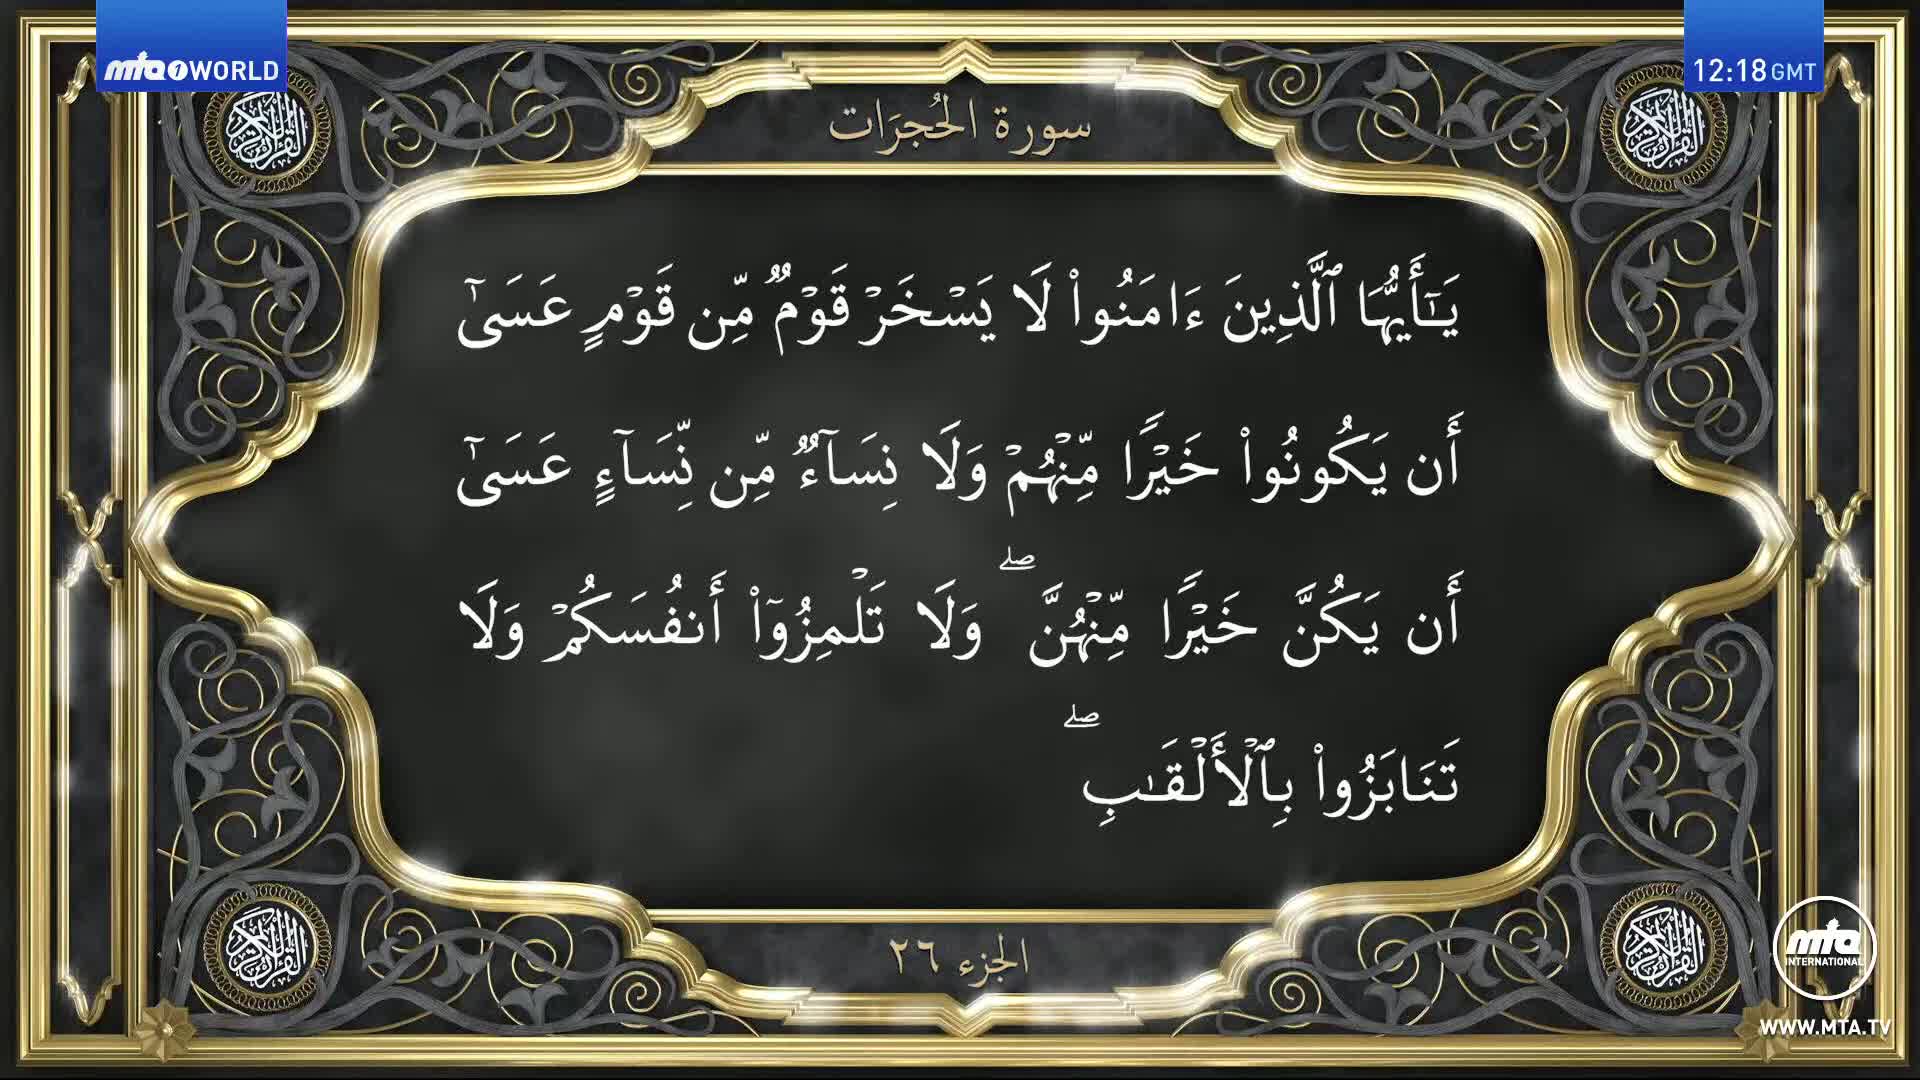 mta1 WORLD
12:18 GMT
سورة الحُجرَات
يَـٰٓأَيُّهَا ٱلَّذِينَ ءَامَنُوا۟ لَا يَسْخَرْ قَوْمٌ مِّن قَوْمٍ عَسَىٰٓ
أَن يَكُونُوا۟ خَيْرًا مِّنْهُمْ وَلَا نِسَآءٌ مِّن نِّسَآءٍ عَسَىٰٓ
أَن يَكُنَّ خَيْرًا مِّنْهُنَّ ۖ وَلَا تَلْمِزُوٓا۟ أَنفُسَكُمْ وَلَا
تَنَابَزُوا۟ بِٱلْأَلْقَـٰبِ ۖ
الجزء ٢٦
القرآن الكريم
القرآن الكريم
القرآن الكريم
القرآن الكريم
mta
INTERNATIONAL
WWW.MTA.TV